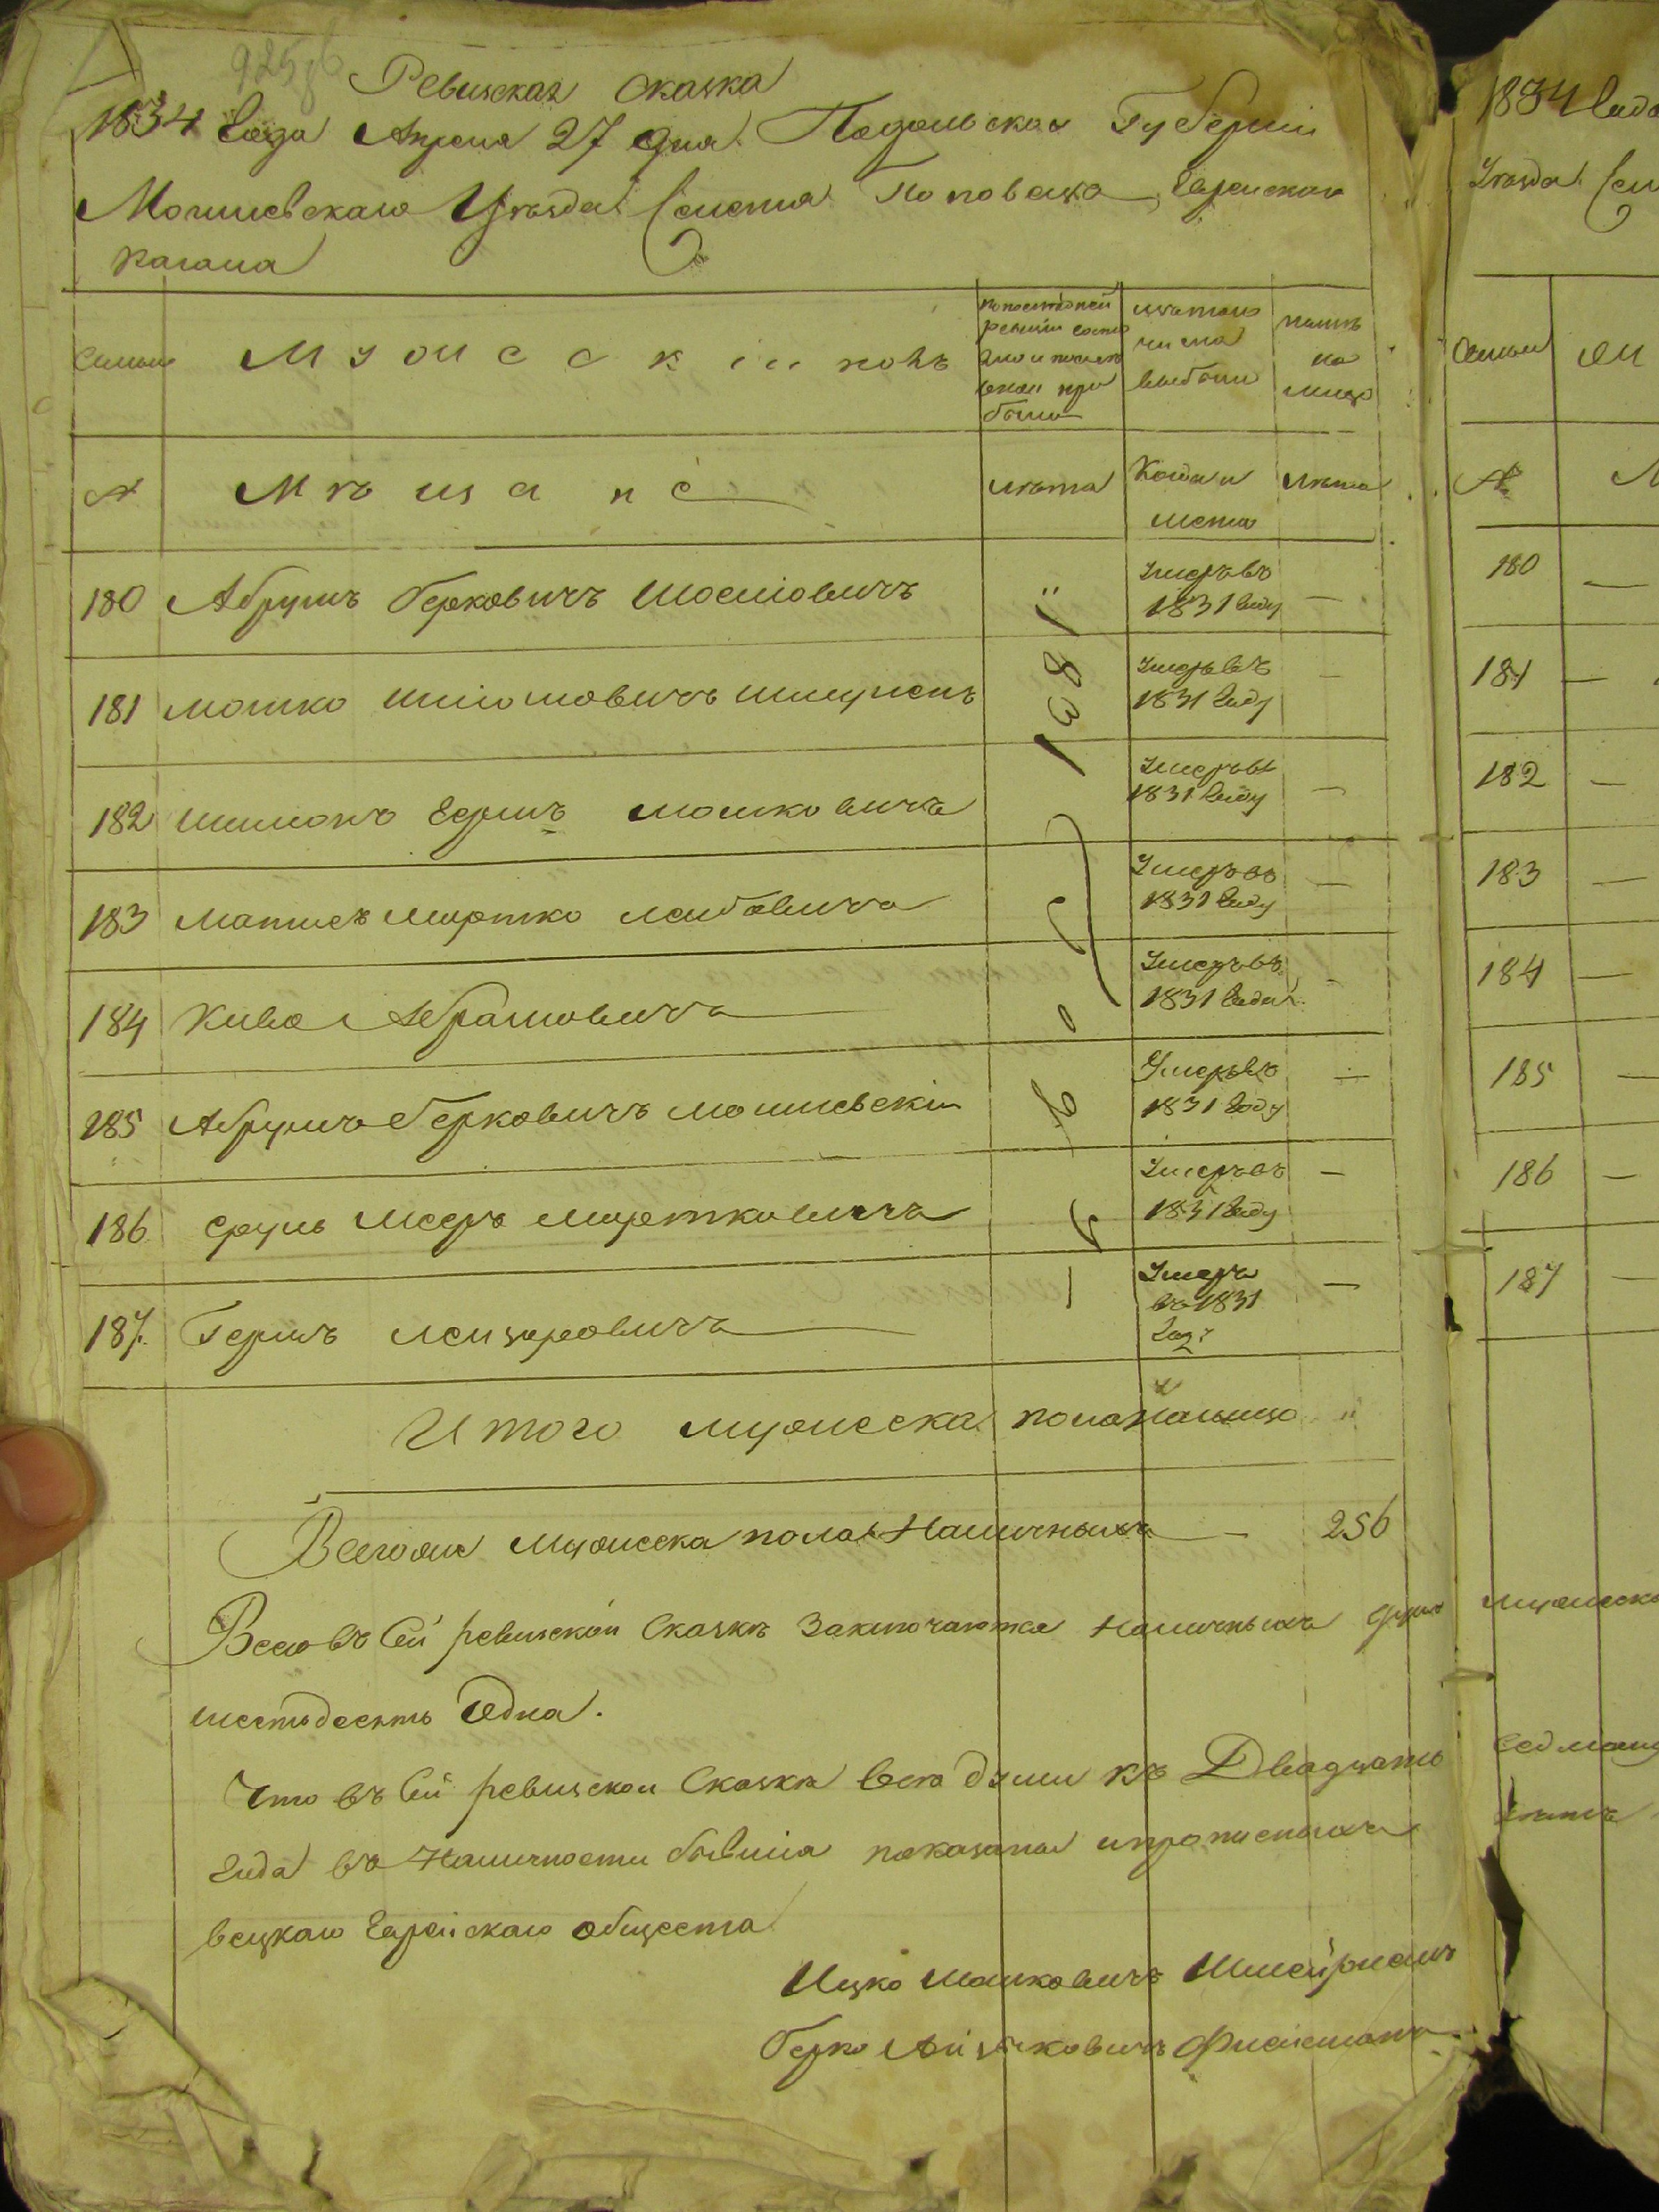 925
Ревизская сказка
1834 года Апреля 27 дня Подольской Губернии
Могилевского Уѣзда Селенія Поповецъ Еврейскаго
Кагала
Семьи
Мужескій полъ
по последней ревизіи состояло и после оной прибыло
изъ того числа выбыли
нынѣ на лицо
№
Мѣщане
лѣта
Когда и
лѣта
180 Абрумъ Берковичъ
Умеръ въ
1831 году —
181 Мошко Шліомовичъ
Умеръ въ
1831 году —
182 Шлиома Гершъ Мошковичъ
Умеръ въ
1831 году —
183 Матисъ Мортко Лейбовичъ
Умеръ въ
1831 году —
184 Кива Абрамовичъ
Умеръ въ
1831 года —
185 Абрумъ Берковичъ Могилевскій
Умеръ въ
1831 году —
186 Сруль Мееръ Мортковичъ
Умеръ въ
1831 году —
187. Гершъ Лейзеровичъ
Умеръ
въ 1831
году —
1831
Итого мужеска пола налицо "
Всего же мужеска пола Наличныхъ — 256
Всего въ сей ревизской Сказкѣ Заключается Наличныхъ душъ
шестьдесятъ Одна.
Что въ Сей ревизской Сказкѣ все души къ Двадцать
года въ Наличности бывшіе показаны и прописныхъ
вецкаго Еврейскаго общества
Ицко Мошковичъ
Берко Айзиковичъ
1834 года
Уѣзда Сел
Семьи
№
180 —
181 —
182 —
183 —
184 —
185 —
186 —
187 —
мужеска